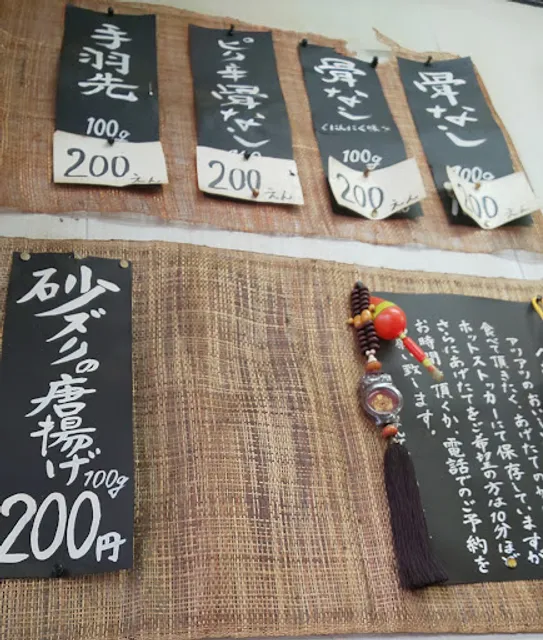 手羽先
100g
200えん
ピリ辛骨なし
200えん
骨なし
(にんにく味)
100g
200えん
骨なし
100g
200えん
砂ズリの唐揚げ
100g
200円
アツアツのおいし
食べて頂きたく、あげたての
ホットストッカーにて保存していますが
さらにあげたてをご希望の方は10分ほど
お時間 頂くか、電話でのご予約を
い致します。